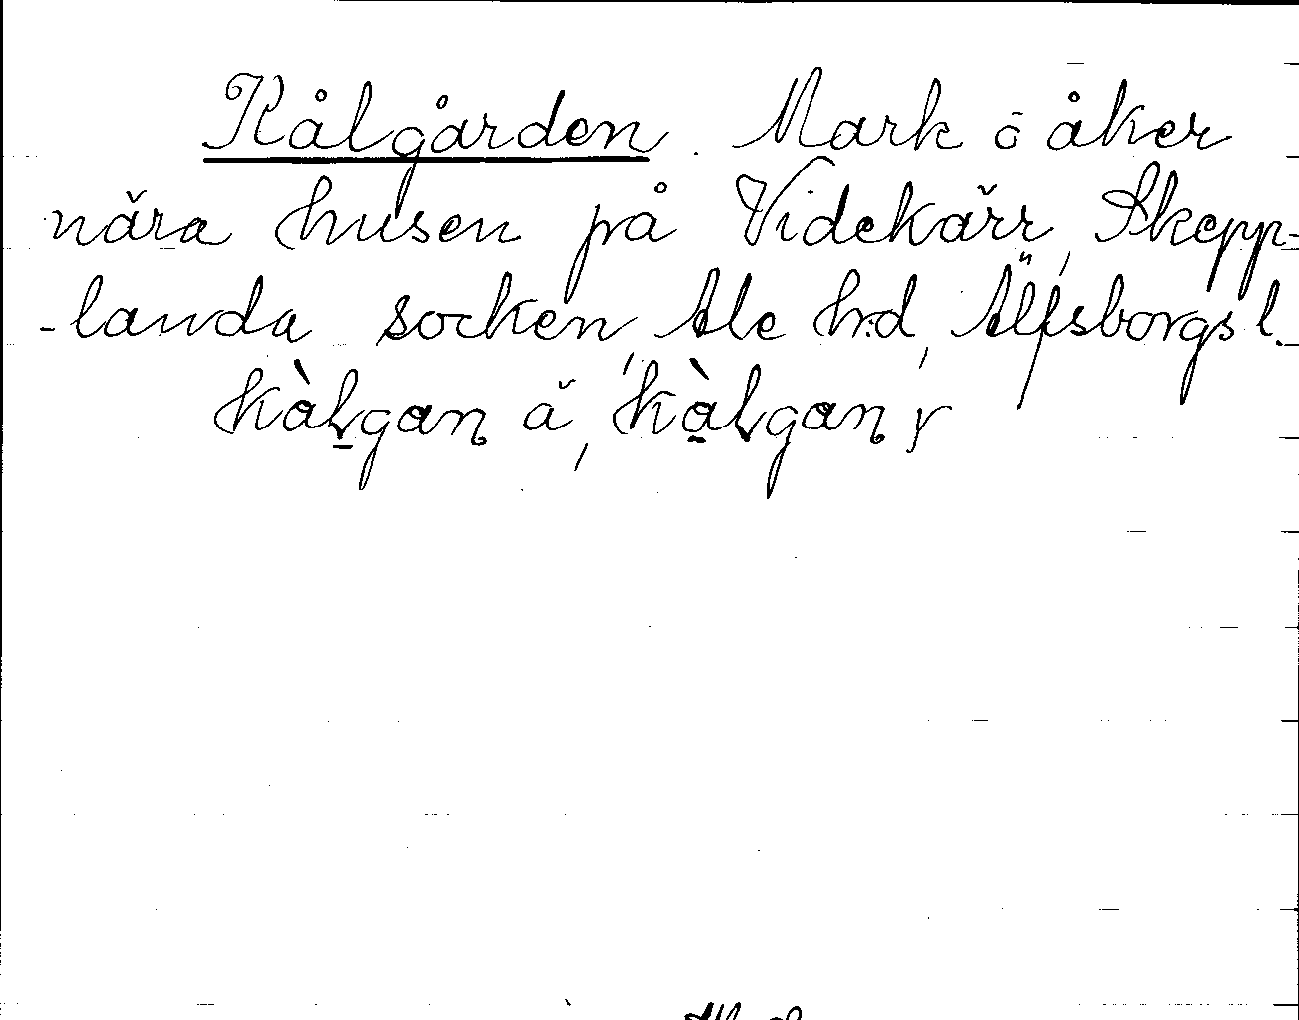 Kålgården. Mark ō åker
nära husen på Videkärr, Skepp-
-landa socken, Ale h:d, Älfsborgs l.
kàlgan ä, kàlgan,